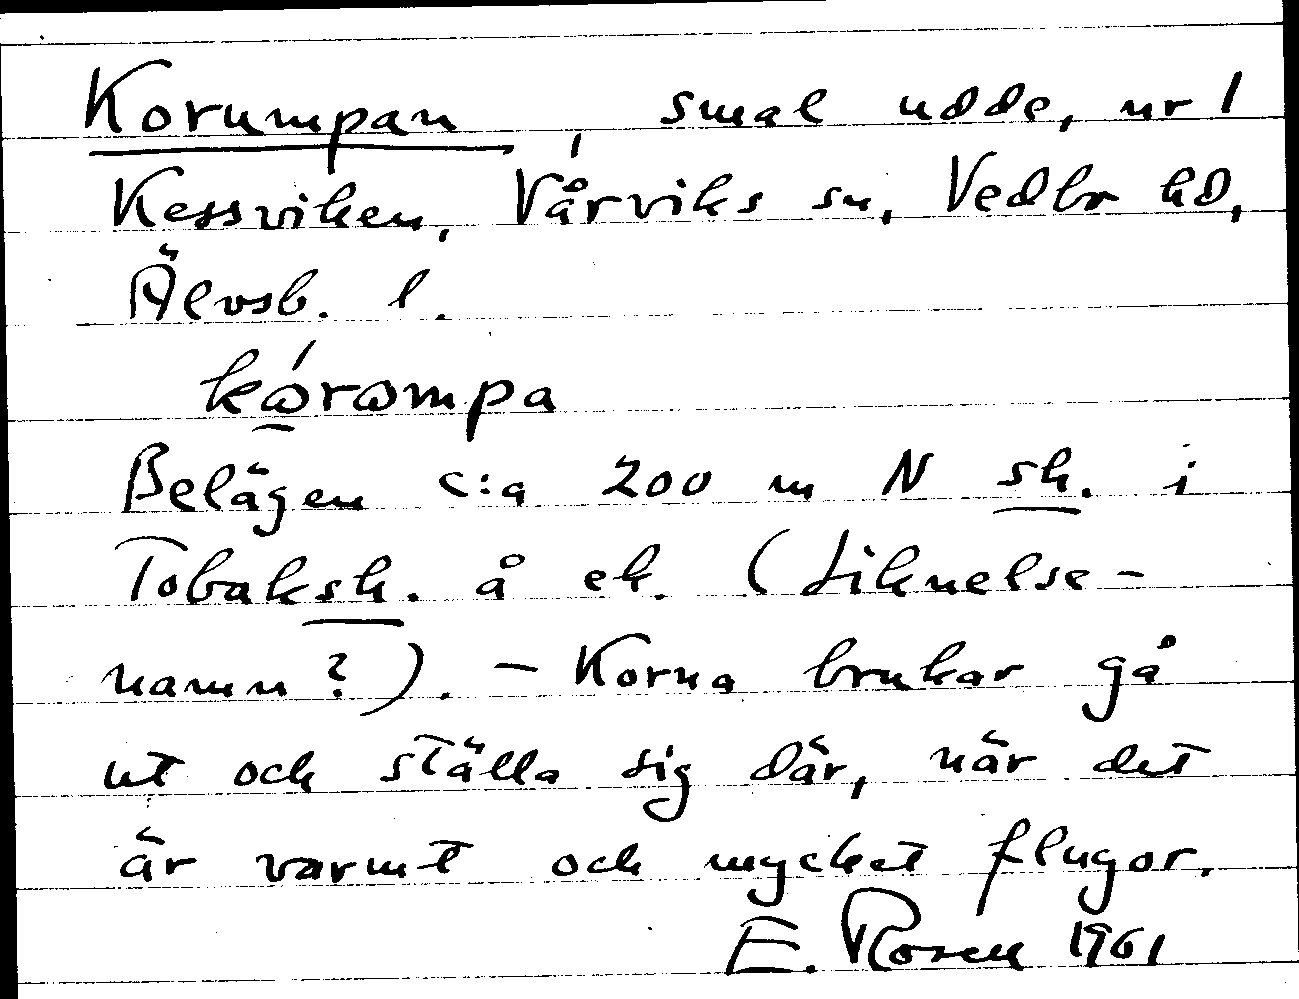 Korumpan, smal udde, nr 1
Kessviken, Vårviks sn, Vedbo hd,
Älvsb. l.
kɷ́rɷmpa
Belägen c:a 200 m N sk. i
Tobaksk. å ek. (Liknelse-
namn?). - Korna brukar gå
ut och ställa sig där, när det
är varmt och mycket flugor.
E. Rosen 1961